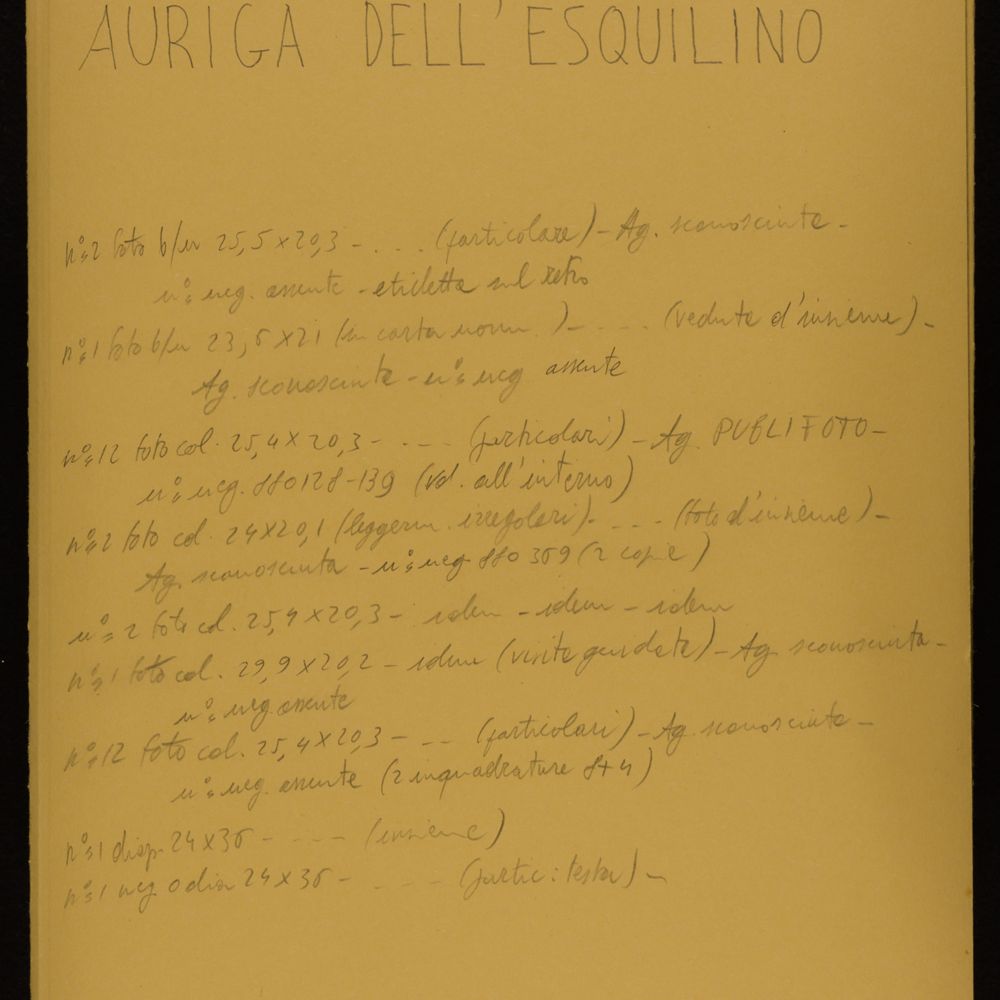 AURIGA DELL'ESQUILINO
n°=2 foto b/n 25,5x20,3 - ... (particolare) - Ag. sconosciuta -
n°= neg. assente - etichetta sul retro
n°=1 foto b/n 23,5x21 (in carta norm. ) - .... (veduta d'insieme) -
Ag. sconosciuta - n°= neg assente
n°=12 foto col. 25,4x20,3 - .... (particolari) - Ag. PUBLIFOTO -
n°= neg. 880128-139 (vd. all'interno)
n°=2 foto col. 24x20,1 (leggerm. irregolari) - .... (foto d'insieme) -
Ag. sconosciuta - n°= neg 880369 (2 copie)
n°=2 foto col. 25,4x20,3 - idem - idem - idem
n°=1 foto col. 29,9x20,2 - idem (visite guidate) - Ag. sconosciuta -
n°= neg. assente
n°=12 foto col. 25,4x20,3 - ... (particolari) - Ag. sconosciuta -
n°= neg. assente (2 inquadrature 8+4)
n°=1 diap. 24x36 - .... (insieme)
n°=1 neg o dia 24x36 - .... (partic: testa) -